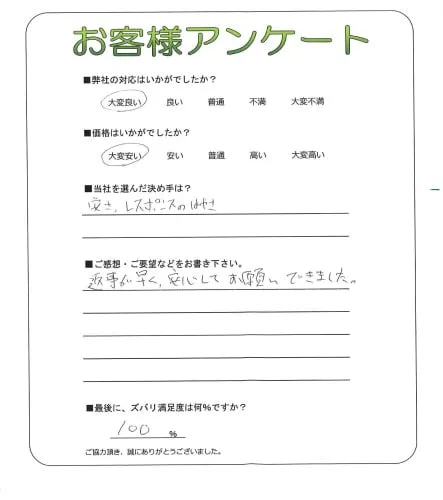 お客様アンケート
■弊社の対応はいかがでしたか?
大変良い 良い 普通 不満 大変不満
■価格はいかがでしたか?
大変安い 安い 普通 高い 大変高い
■当社を選んだ決め手は?
安さ、レスポンスのはやさ
■ご感想・ご要望などをお書き下さい。
返事が早く、安心してお願いできました。
■最後に、ズバリ満足度は何%ですか?
100 %
ご協力頂き、誠にありがとうございました。